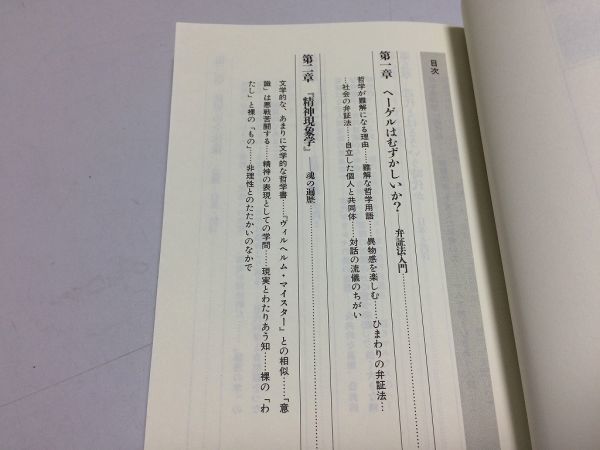 目次
第一章 ヘーゲルはむずかしいか?——弁証法入門
哲学が難解になる理由……難解な哲学用語……異物感を楽しむ……ひまわりの弁証法…
…社会の弁証法……自立した個人と共同体……対話の流儀のちがい
第二章 『精神現象学』——魂の遍歴
文学的な、あまりに文学的な哲学書……『ヴィルヘルム・マイスター』との相似……「意
識」は悪戦苦闘する……精神の表現としての学問……現実とわたりあう知……裸の「わ
たし」と裸の「もの」……非理性とのたたかいのなかで